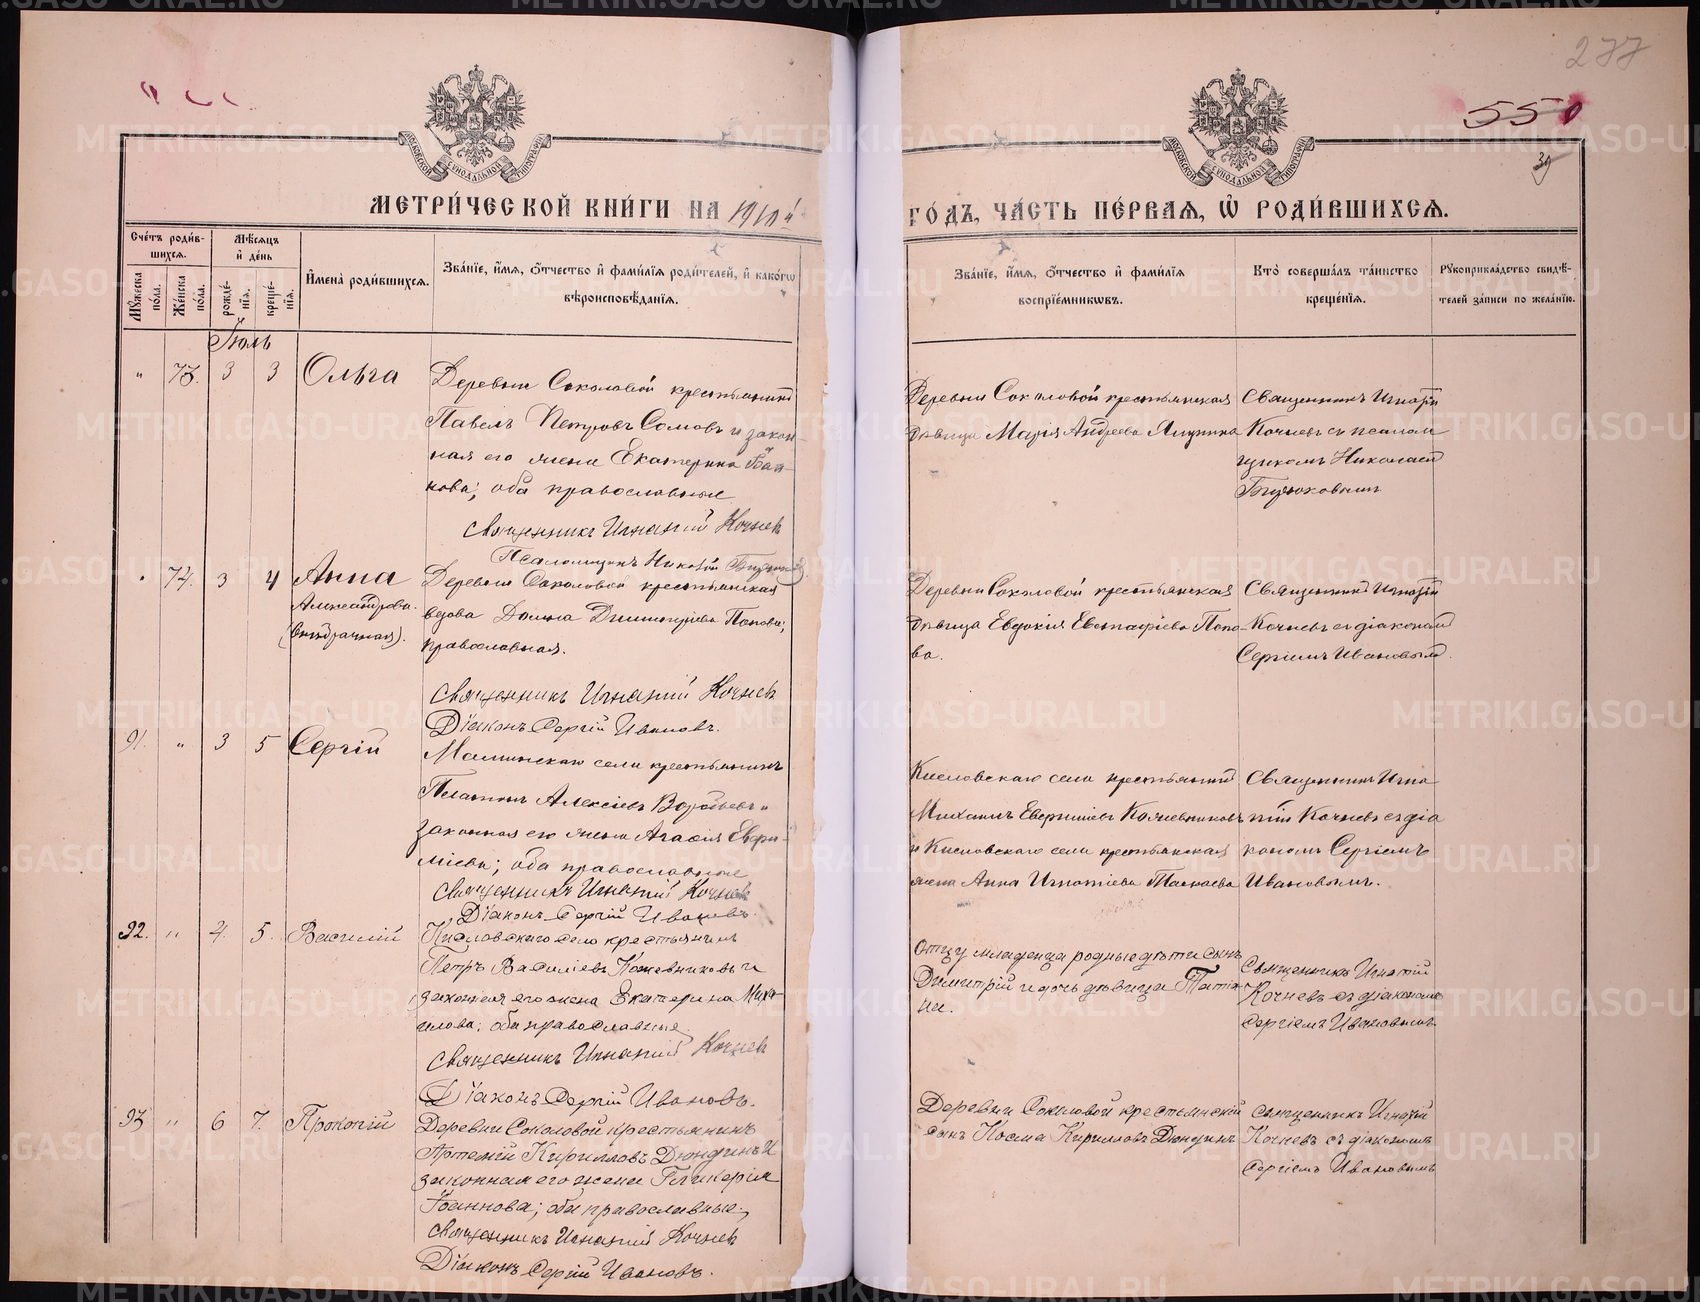 277
550
39
МОСКОВСКОЙ СѴНОДАЛЬНОЙ ТИПОГРАФІИ
МОСКОВСКОЙ СѴНОДАЛЬНОЙ ТИПОГРАФІИ
МЕТРИ́ЧЕСКОЙ КНИ́ГИ НА 1910й
ГО́ДЪ, ЧА́СТЬ ПЕ́РВАЯ, Ѡ҆ РОДИ́ВШИХСЯ.
Сче́тъ роди́в-
шихся.
Мꙋ́жеска по́ла.
Же́нска по́ла.
Мѣ́сяцъ и҆ де́нь
рожде́-нїя.
креще́-нїя.
И҆мена̀ роди́вшихся.
Зва́нїе, и҆́мя, ѻ҆́тчество и҆ фами́лїя роди́телей, и҆ како́гѡ
вѣроисповѣ́данїя.
Зва́нїе, и҆́мя, ѻ҆́тчество и҆ фами́лїя
воспрїе́мникѡвъ.
Кто̀ соверша́лъ та́инство
креще́нїя.
Рꙋкоприкла́дство свидѣ́-
телей за́писи по жела́нїю.
Іюль
" 73. 3 3 Ольга
Деревни Соколовой крестьянинъ
Павелъ Петровъ Сомовъ и закон-
ная его жена Екатерина Іоан-
нова; оба православные
Священникъ Игнатій Кочневъ
Псаломщикъ Николай
Деревни Соколовой крестьянская
дѣвица Марія Андреева
Священникъ Игнатій
Кочневъ съ псалом
щикомъ Николаемъ
" 74. 3 4 Анна
Александрова.
(внѣбрачная).
Деревни Соколовой крестьянская
вдова Домна Димитріева Попова;
православная.
Священникъ Игнатій Кочневъ
Діаконъ Сергій Ивановъ.
Деревни Соколовой крестьянская
дѣвица Евдокія Евстафіева Попо-
ва.
Священникъ Игнатій
Кочневъ съ діакономъ
Сергіемъ Ивановымъ.
91. " 3 5 Сергій
Маминскаго села крестьянинъ
Платонъ Алексіевъ Воробьевъ и
законная его жена Агафія Евфи-
міева; оба православные
Священникъ Игнатій Кочневъ
Діаконъ Сергій Ивановъ.
Кисловскаго села крестьянинъ
Михаилъ Кожевниковъ
и Кисловскаго села крестьянская
жена Анна Игнатіева
Священникъ Игна
тій Кочневъ съ діа
кономъ Сергіемъ
Ивановымъ.
92. " 4. 5. Василій
Кисловскаго села крестьянинъ
Петръ Василіевъ Кожевниковъ и
законная его жена Екатерина Миха-
илова; оба православные.
Священникъ Игнатій Кочневъ
Діаконъ Сергій Ивановъ.
Отцу младенца родные дѣти сынъ
Димитрій и дочь дѣвица Татіа-
на.
Священникъ Игнатій
Кочневъ съ діакономъ
Сергіемъ Ивановымъ
93 " 6 7. Прокопій
Деревни Соколовой крестьянинъ
Артемій Кирилловъ Дюндинъ и
законная его жена Гликерія
Іоаннова; оба православные,
Священникъ Игнатій Кочневъ
Діаконъ Сергій Ивановъ.
Деревни Соколовой крестьянскій
сынъ Косма Кирилловъ Дюндинъ
Священникъ Игнатій
Кочневъ съ діакономъ
Сергіемъ Ивановымъ
METRIKI.GASO-URAL.RU